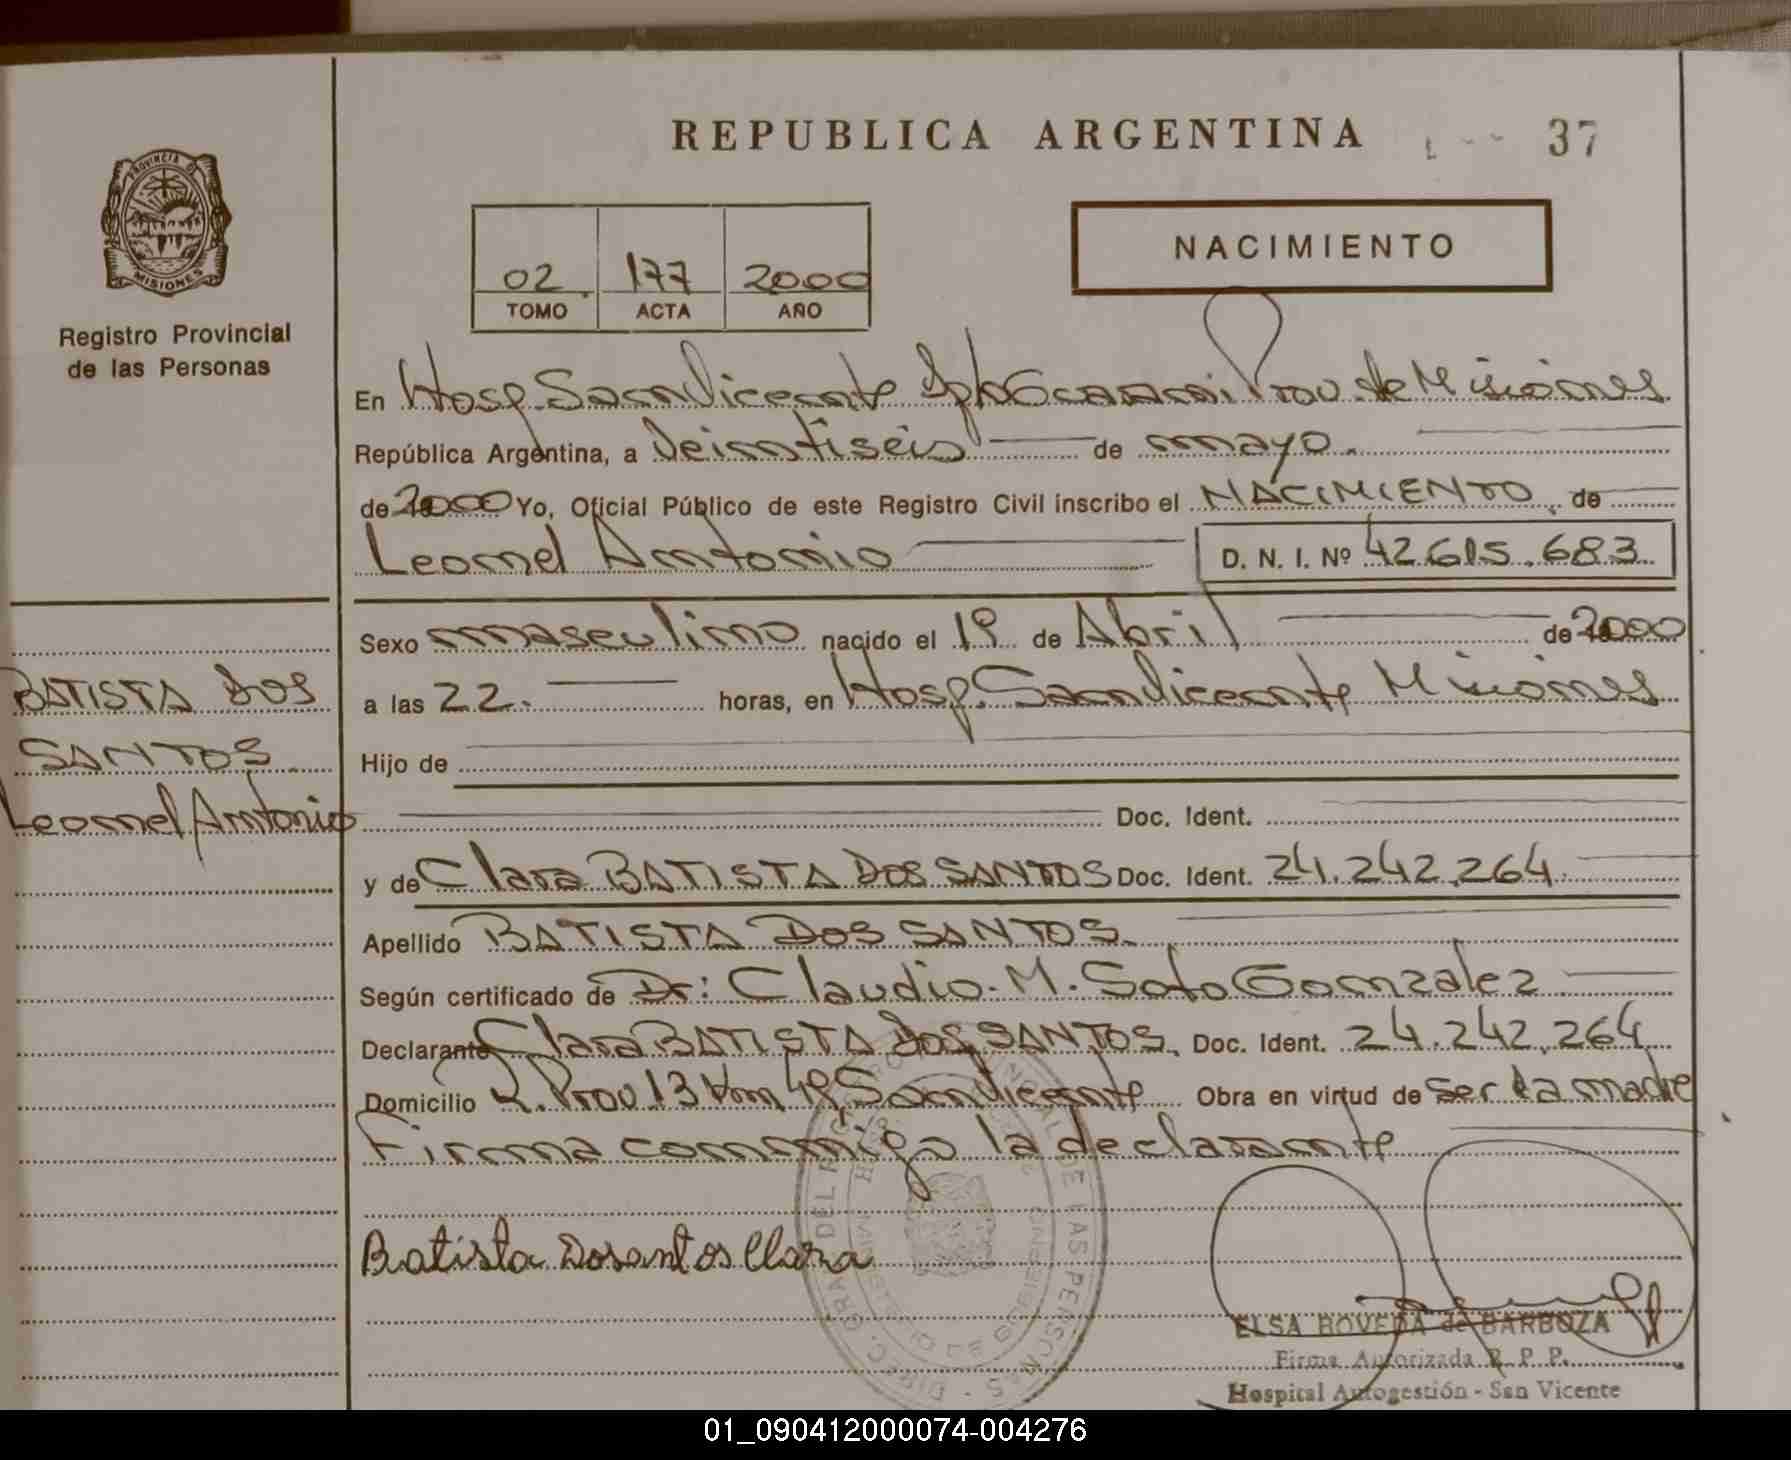 REPUBLICA ARGENTINA
37
PROVINCIA DE
MISIONES
Registro Provincial
de las Personas
02 177 2000
TOMO ACTA AÑO
NACIMIENTO
En Hosp. San Vicente Dpto Guaraní Prov. de Misiones
República Argentina, a Veintiséis de mayo.
de 2000 Yo, Oficial Público de este Registro Civil inscribo el NACIMIENTO de
Leonel Antonio D. N. I. Nº 42.615.683
Sexo masculino nacido el 19 de Abril de 2000
a las 22. horas, en Hosp. San Vicente Misiones
Hijo de
Doc. Ident.
y de Clara BATISTA DOS SANTOS Doc. Ident. 24.242.264
Apellido BATISTA DOS SANTOS
Según certificado de Dr: Claudio. M. Soto Gonzalez
Declarante Clara BATISTA DOS SANTOS. Doc. Ident. 24.242.264
Domicilio R. Prov 13 Km 49 San Vicente Obra en virtud de ser la madre
Firma conmigo la declarante
BATISTA DOS
SANTOS
Leonel Antonio
Batista Dosantos Clara
ELSA BOVEDA de BARBOZA
Firma Autorizada R. P. P.
Hospital Autogestión - San Vicente
01_090412000074-004276